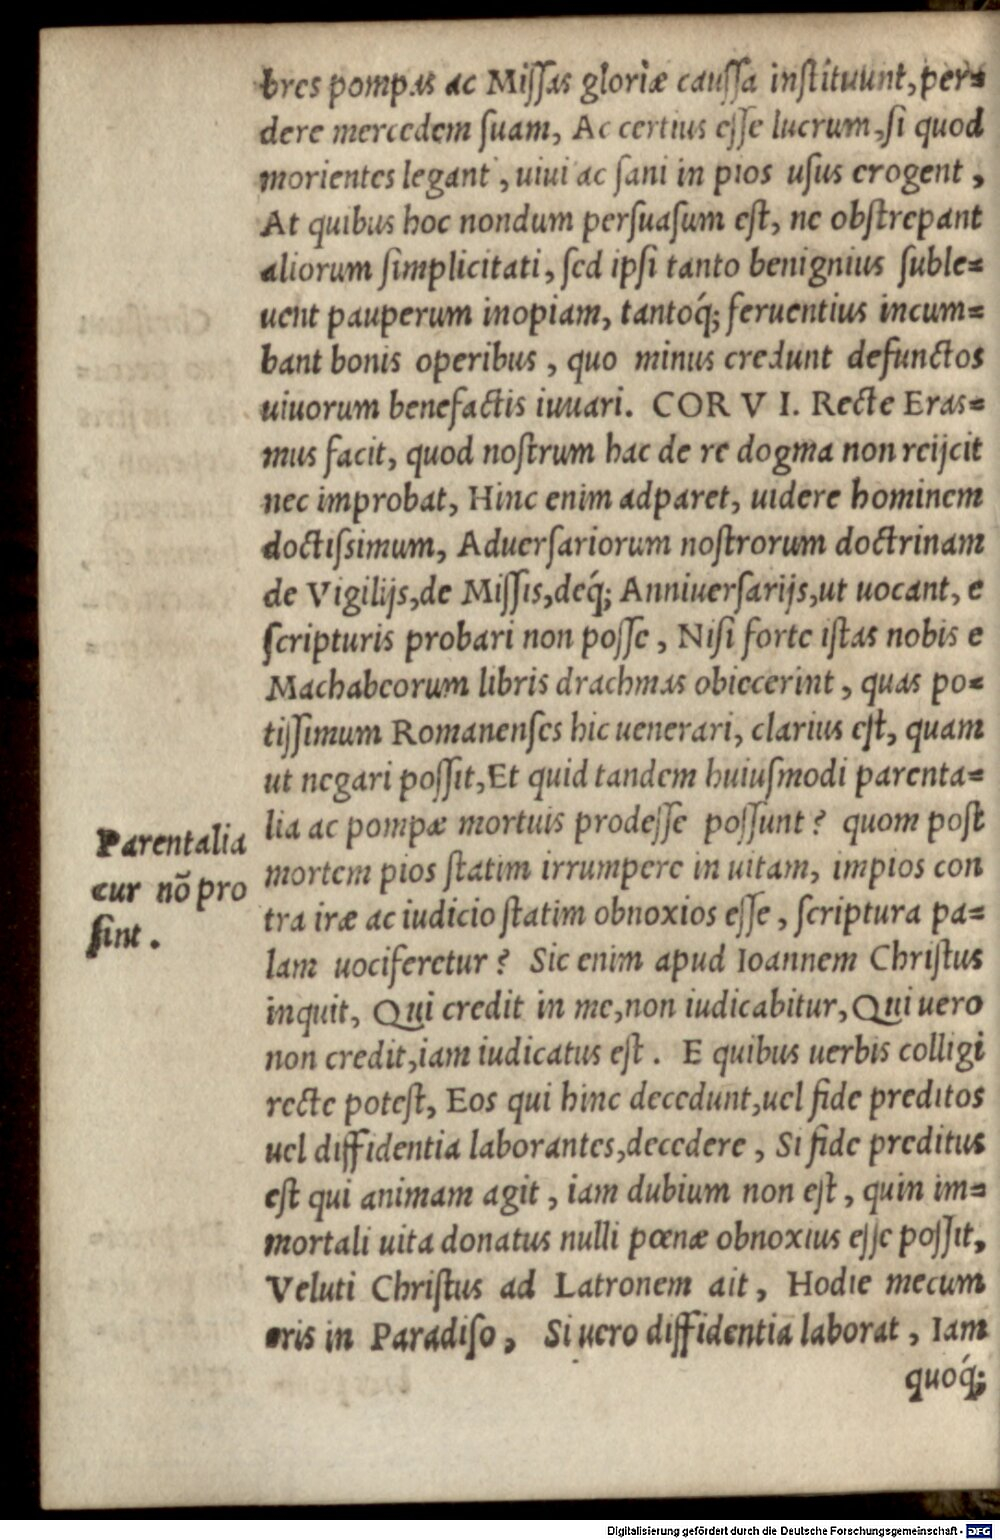 bres pompas ac Miſſas gloriæ cauſſa inſtituunt, per=
dere mercedem ſuam, Ac certius eſſe lucrum, ſi quod
morientes legant, uiui ac ſani in pios uſus erogent,
At quibus hoc nondum perſuaſum eſt, ne obſtrepant
aliorum ſimplicitati, ſed ipſi tanto benignius ſuble=
uent pauperum inopiam, tantóq́; feruentius incum=
bant bonis operibus, quo minus credunt defunctos
uiuorum benefactis iuuari. COR V I. Recte Eraſ=
mus facit, quod noſtrum hac de re dogma non reijcit
nec improbat, Hinc enim adparet, uidere hominem
doctiſsimum, Aduerſariorum noſtrorum doctrinam
de Vigilijs, de Miſſis, deq́; Anniuerſarijs, ut uocant, e
ſcripturis probari non poſſe, Niſi forte iſtas nobis e
Machabeorum libris drachmas obiecerint, quas po=
tiſſimum Romanenſes hic uenerari, clarius eſt, quam
ut negari poſſit, Et quid tandem huiuſmodi parenta=
lia ac pompæ mortuis prodeſſe poſſunt? quom poſt
mortem pios ſtatim irrumpere in uitam, impios con
tra iræ ac iudicio ſtatim obnoxios eſſe, ſcriptura pa=
lam uociferetur? Sic enim apud Ioannem Chriſtus
inquit, Qui credit in me, non iudicabitur, Qui uero
non credit, iam iudicatus eſt. E quibus uerbis colligi
recte poteſt, Eos qui hinc decedunt, uel fide preditos
uel diffidentia laborantes, decedere, Si fide preditus
eſt qui animam agit, iam dubium non eſt, quin im=
mortali uita donatus nulli pœnæ obnoxius eſſe poſſit,
Veluti Chriſtus ad Latronem ait, Hodie mecum
eris in Paradiſo, Si uero diffidentia laborat, Iam
quoq́;
Parentalia
cur nō pro
ſint.
Digitalisierung gefördert durch die Deutsche Forschungsgemeinschaft - DFG